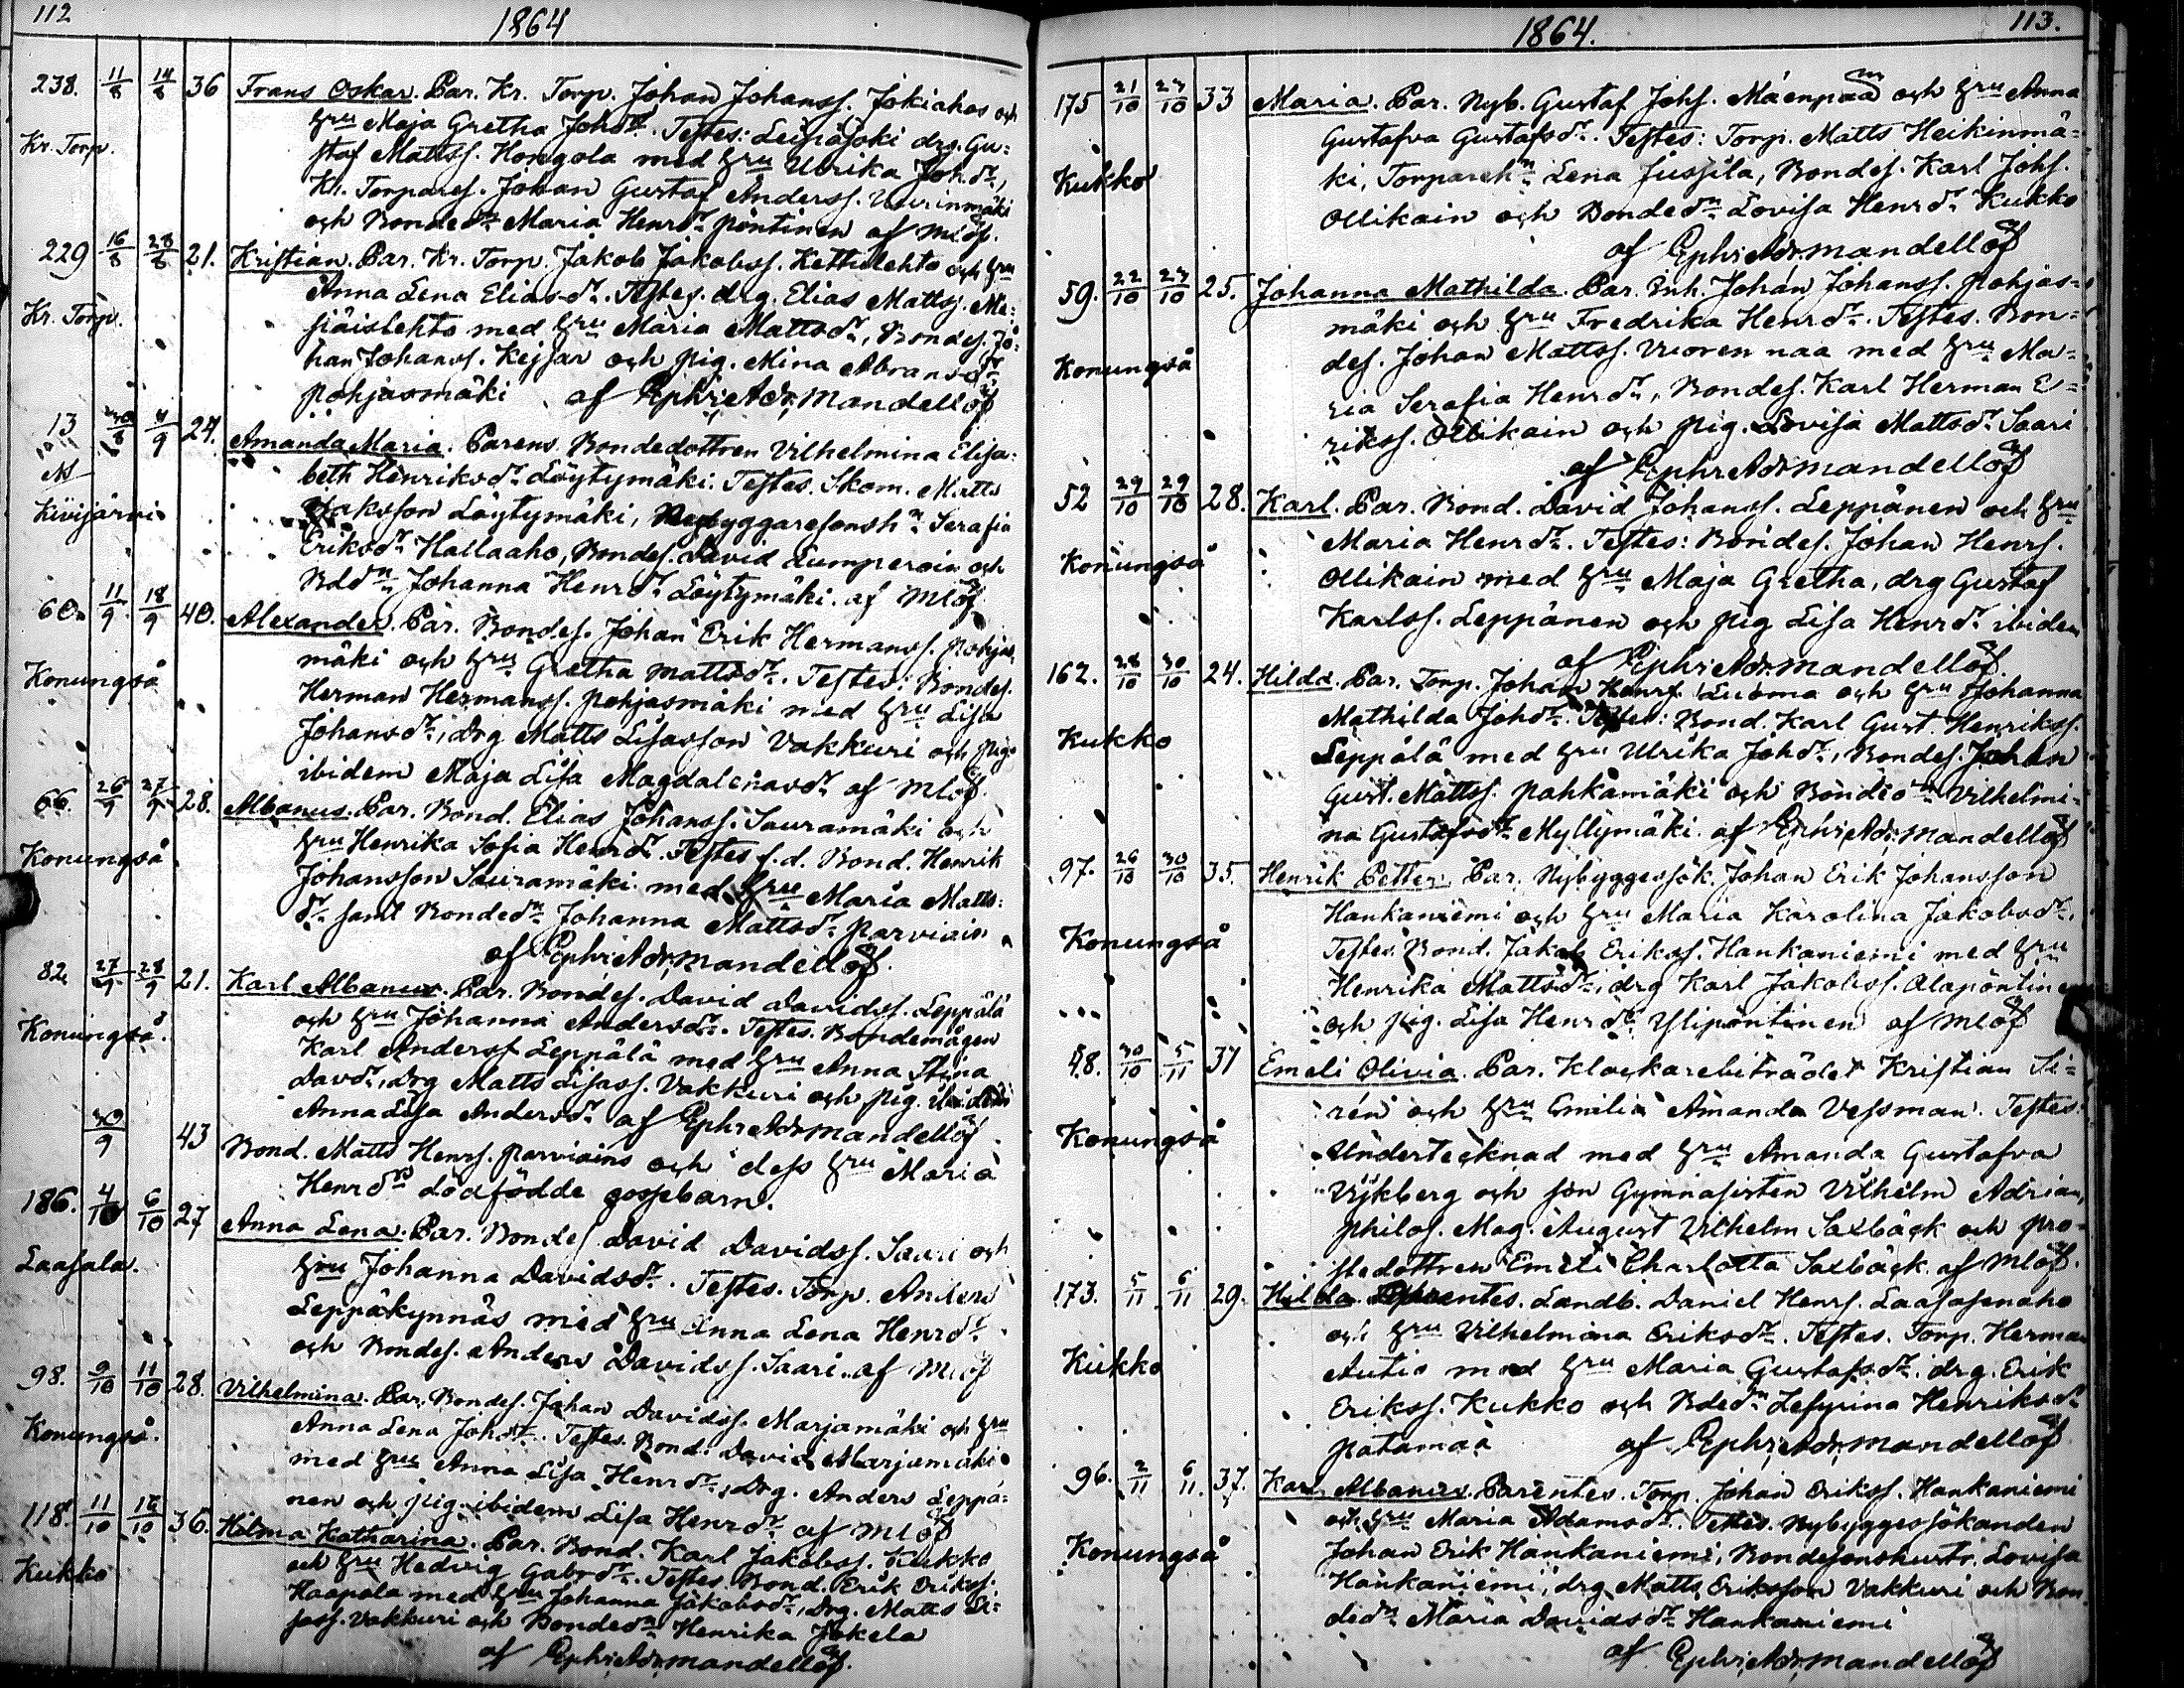 112
1864
238. 11/8 14/8 36 Frans Oskar. Par. Kr. Torp. Johan Johanss. Jokiahos och
hru Maja Gretha Johdr. Testes: Leipäjoki drg. Gu=
Kr. Torp. staf Mattss. Hongola med hru Ulrika Johdr,
Kr. Torpares. Johan Gustaf Anderss. Uurinmäki
och Bondedn Maria Henrdr Pöntinen af Mlöf.
229 16/8 28/8 21. Kristian. Par. Kr. Torp. Jakob Jakobss. Kettulehto och hru
Anna Lena Elias dr. Testes. drg. Elias Mattss. Me=
Kr. Torp. siäislehto med hru Maria Mattsdr, Bondes. Jo=
han Johanss. Keisar och pig. Mina Abramsdr
Pohjasmäki af Ephr: Adr: Mandellöf
13 30/8 4/9 24. Amanda Maria. Parens Bondedottren Vilhelmina Elisa=
beth Henriksdr Löytymäki. Testes. Skom. Matts
Kivijärvi Isaksson Löytymäki, Nybyggaresonsh. Serafia
Eriksdr Hallaaho, Bondes. David Lumperoin och
Bddn Johanna Henrdr Löytymäki. af Mlöf
60. 11/9 18/9 40. Alexander. Par. Bondes. Johan Erik Hermanss. Pohjas
mäki och hru Gretha Mattsdr. Testes: Bondes.
Konungså Herman Hermanss. Pohjasmäki med hru Lisa
Johansdr, drg Matts Lisasson Vakkuri och pig.
ibidem Maja Lisa Magdalenasdr af Mlöf.
66. 26/9 27/9 28. Albanus. Par. Bond. Elias Johanss. Sauramäki och
hru Henrika Sofia Henrdr. Testes f.d. Bond. Henrik
Konungså Johansson Sauramäki med hru Maria Matts=
dr samt Bondedn Johanna Mattsdr Parviain
af Ephr: Adr: Mandellöf.
82. 27/9 28/9 21. Karl Albanus. Par. Bondes. David Davidss. Leppälä
och hru Johanna Andersdr. Testes. Bondemågen
Konungså. Karl Anderss Leppälä med hru Anna Stina
Davdr, drg Matts Lisass. Vakkuri och pig. ibidem
Anna Lisa Andersdr af Ephr Adr Mandellöf
30/9 43 Bond. Matts Henrs. Parviains och dess hru Maria
Henrdrs dödfödde gossebarn.
186. 4/10 6/10 27 Anna Lena. Par. Bondes David Davidss. Saari och
hru Johanna Davidsdr. Testes. Torp. Anders
Laasala. Leppäkynnäs med hru Anna Lena Henrdr
och Bondes. Anders Davidss. Saari. af Mlöf
98. 9/10 11/10 28. Vilhelmina. Par. Bondes. Johan Davidss. Marjamäki och hru
Anna Lena Johdr. Testes. Bond. David Marjamäki
Konungså. med hru Anna Lisa Henrdr, Drg. Anders Leppä=
nen och pig. ibidem Lisa Henrdr af Mlöf
118. 11/10 12/10 36. Hilma Katharina. Par. Bond. Karl Jakobss. Kukko
och hru Hedvig Gabrdr. Testes. Bond. Erik Erikss.
Kukko Haapala med hru Johanna Jakobsdr, Drg. Matts Li=
sass. Vakkuri och Bondedn Henrika Jokela
af Ephr: Adr: Mandellöf.
1864.
113.
175 21/10 23/10 33 Maria. Par. Nyb. Gustaf Johs. Mäenpää och hru Anna
Gustafva Gustafsdr. Testes: Torp. Matts Heikinmä=
Kukko ki, Torpareh. Lena Jussila, Bondes. Karl Johs.
Ollikain och Bondedn Lovisa Henrdr Kukko
af Ephr: Adr: Mandellöf
59. 22/10 23/10 25. Johanna Mathilda. Par. Inh. Johan Johanss. Pohjas=
mäki och hru Fredrika Henrdr. Testes. Bon=
Konungså des. Johan Mattss. Vuorenmaa med hru Ma=
ria Serafia Henrdr, Bondes. Karl Herman E=
rikss. Ollikain och pig. Lovisa Mattsdr Saari
af Ephr Adr Mandellöf
52 29/10 29/10 28. Karl. Par. Bond. David Johanss. Leppänen och hru
Maria Henrdr. Testes: Bondes. Johan Henrs.
Konungså Ollikain med hru Maja Gretha, drg Gustaf
Karlss. Leppänen och pig Lisa Henrdr ibidem
af Ephr Adr Mandellöf.
162. 28/10 30/10 24. Hilda. Par. Torp. Johan Henrs. Luoma och hru Johanna
Mathilda Johdr. Testes: Bond. Karl Gust. Henrikss.
Kukko Leppälä med hru Ulrika Johdr, Bondes. Johan
Gust. Mattss. Pahkamäki och Bondedn Vilhelmi=
na Gustafsdr Myllymäki. af Ephr: Adr: Mandellöf
97. 26/10 30/10 35. Henrik Petter. Par. Nybyggessök. Johan Erik Johansson
Hankaniemi och hru Maria Karolina Jakobsdr.
Konungså Testes. Bond. Jakob Erikss. Hankaniemi med hru
Henrika Mattsdr, drg Karl Jakobss. Alapöntinen
och pig. Lisa Henrdr Ylipöntinen af Mlöf
48. 30/10 5/11 37 Emeli Olivia. Par. Klockarebiträdet Kristian Si=
rén och hru Emilia Amanda Vessman. Testes:
Konungså Undertecknad med hru Amanda Gustafva
Vijkberg och son Gymnasisten Vilhelm Adrian,
Philos. Mag. August Vilhelm Saxbäck och pro=
stedottren Emeli Charlotta Saxbäck af Mlöf.
173. 5/11 6/11 29. Hilda. Parentes. Landb. Daniel Henrs. Laasasenaho
och hru Vilhelmina Eriksdr. Testes. Torp. Herman
Kukko Autio med hru Maria Gustafsdr, drg. Erik
Erikss. Kukko och Bdedn Lesprina Henriksdr
Patamaa af Ephr: Adr: Mandellöf
96. 2/11 6/11 37. Karl Albanus. Parentes. Torp. Johan Erikss. Hankaniemi
och hru Maria Adamsdr. Testes. Nybyggessökanden
Konungså Johan Erik Hankaniemi, Bondesonshustr. Lovisa
Hankaniemi, drg Matts Eriksson Vakkuri och Bon
dedn Maria Davidsdr Hankaniemi
af Ephr: Adr: Mandellöf